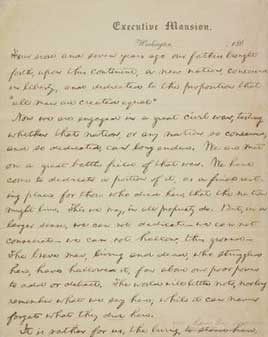 Executive Mansion,
Washington, , 186
Four score and seven years ago our fathers brought
forth, upon this continent, a new nation, conceived
in liberty, and dedicated to the proposition that
"all men are created equal"
Now we are engaged in a great civil war, testing
whether that nation, or any nation so conceived,
and so dedicated, can long endure. We are met
on a great battle field of that war. We have
come to dedicate a portion of it, as a final rest-
ing place for those who died here, that the nation
might live. This we may, in all propriety do. But, in a
larger sense, we can not dedicate — we can not
consecrate — we can not hallow, this ground —
The brave men, living and dead, who struggled
here, have hallowed it, far above our poor power
to add or detract. The world will little note, nor long
remember what we say here; while it can never
forget what they did here.
It is rather for us, the living, to stand here,